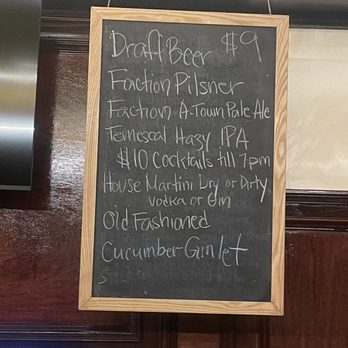 Draft Beer $9
Faction Pilsner
Faction A-Town Pale Ale
Temescal Hazy IPA
$10 Cocktails till 7pm
House Martini Dry or Dirty
Vodka or Gin
Old Fashioned
Cucumber Gimlet
S